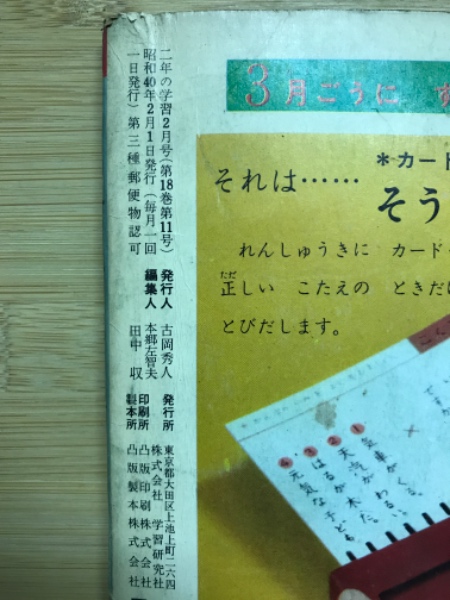 二年の学習2月号(第18巻第11号)
昭和40年2月1日発行(毎月一回
一日発行)第三種郵便物認可
発行人 古岡秀人
編集人 本郷左智夫
田中 収
発行所 東京都大田区上池上町二六四
株式会社 学習研究社
印刷所 凸版印刷株式会社
製本所 凸版製本株式会社
3月ごうに す
*カード
それは……
そう
れんしゅうきに カード
正しい こたえの ときだけ
とびだします。
1 汽車が くる。
2 天気が わるい。
3 はるが 来た。
4 元気な 子ども。